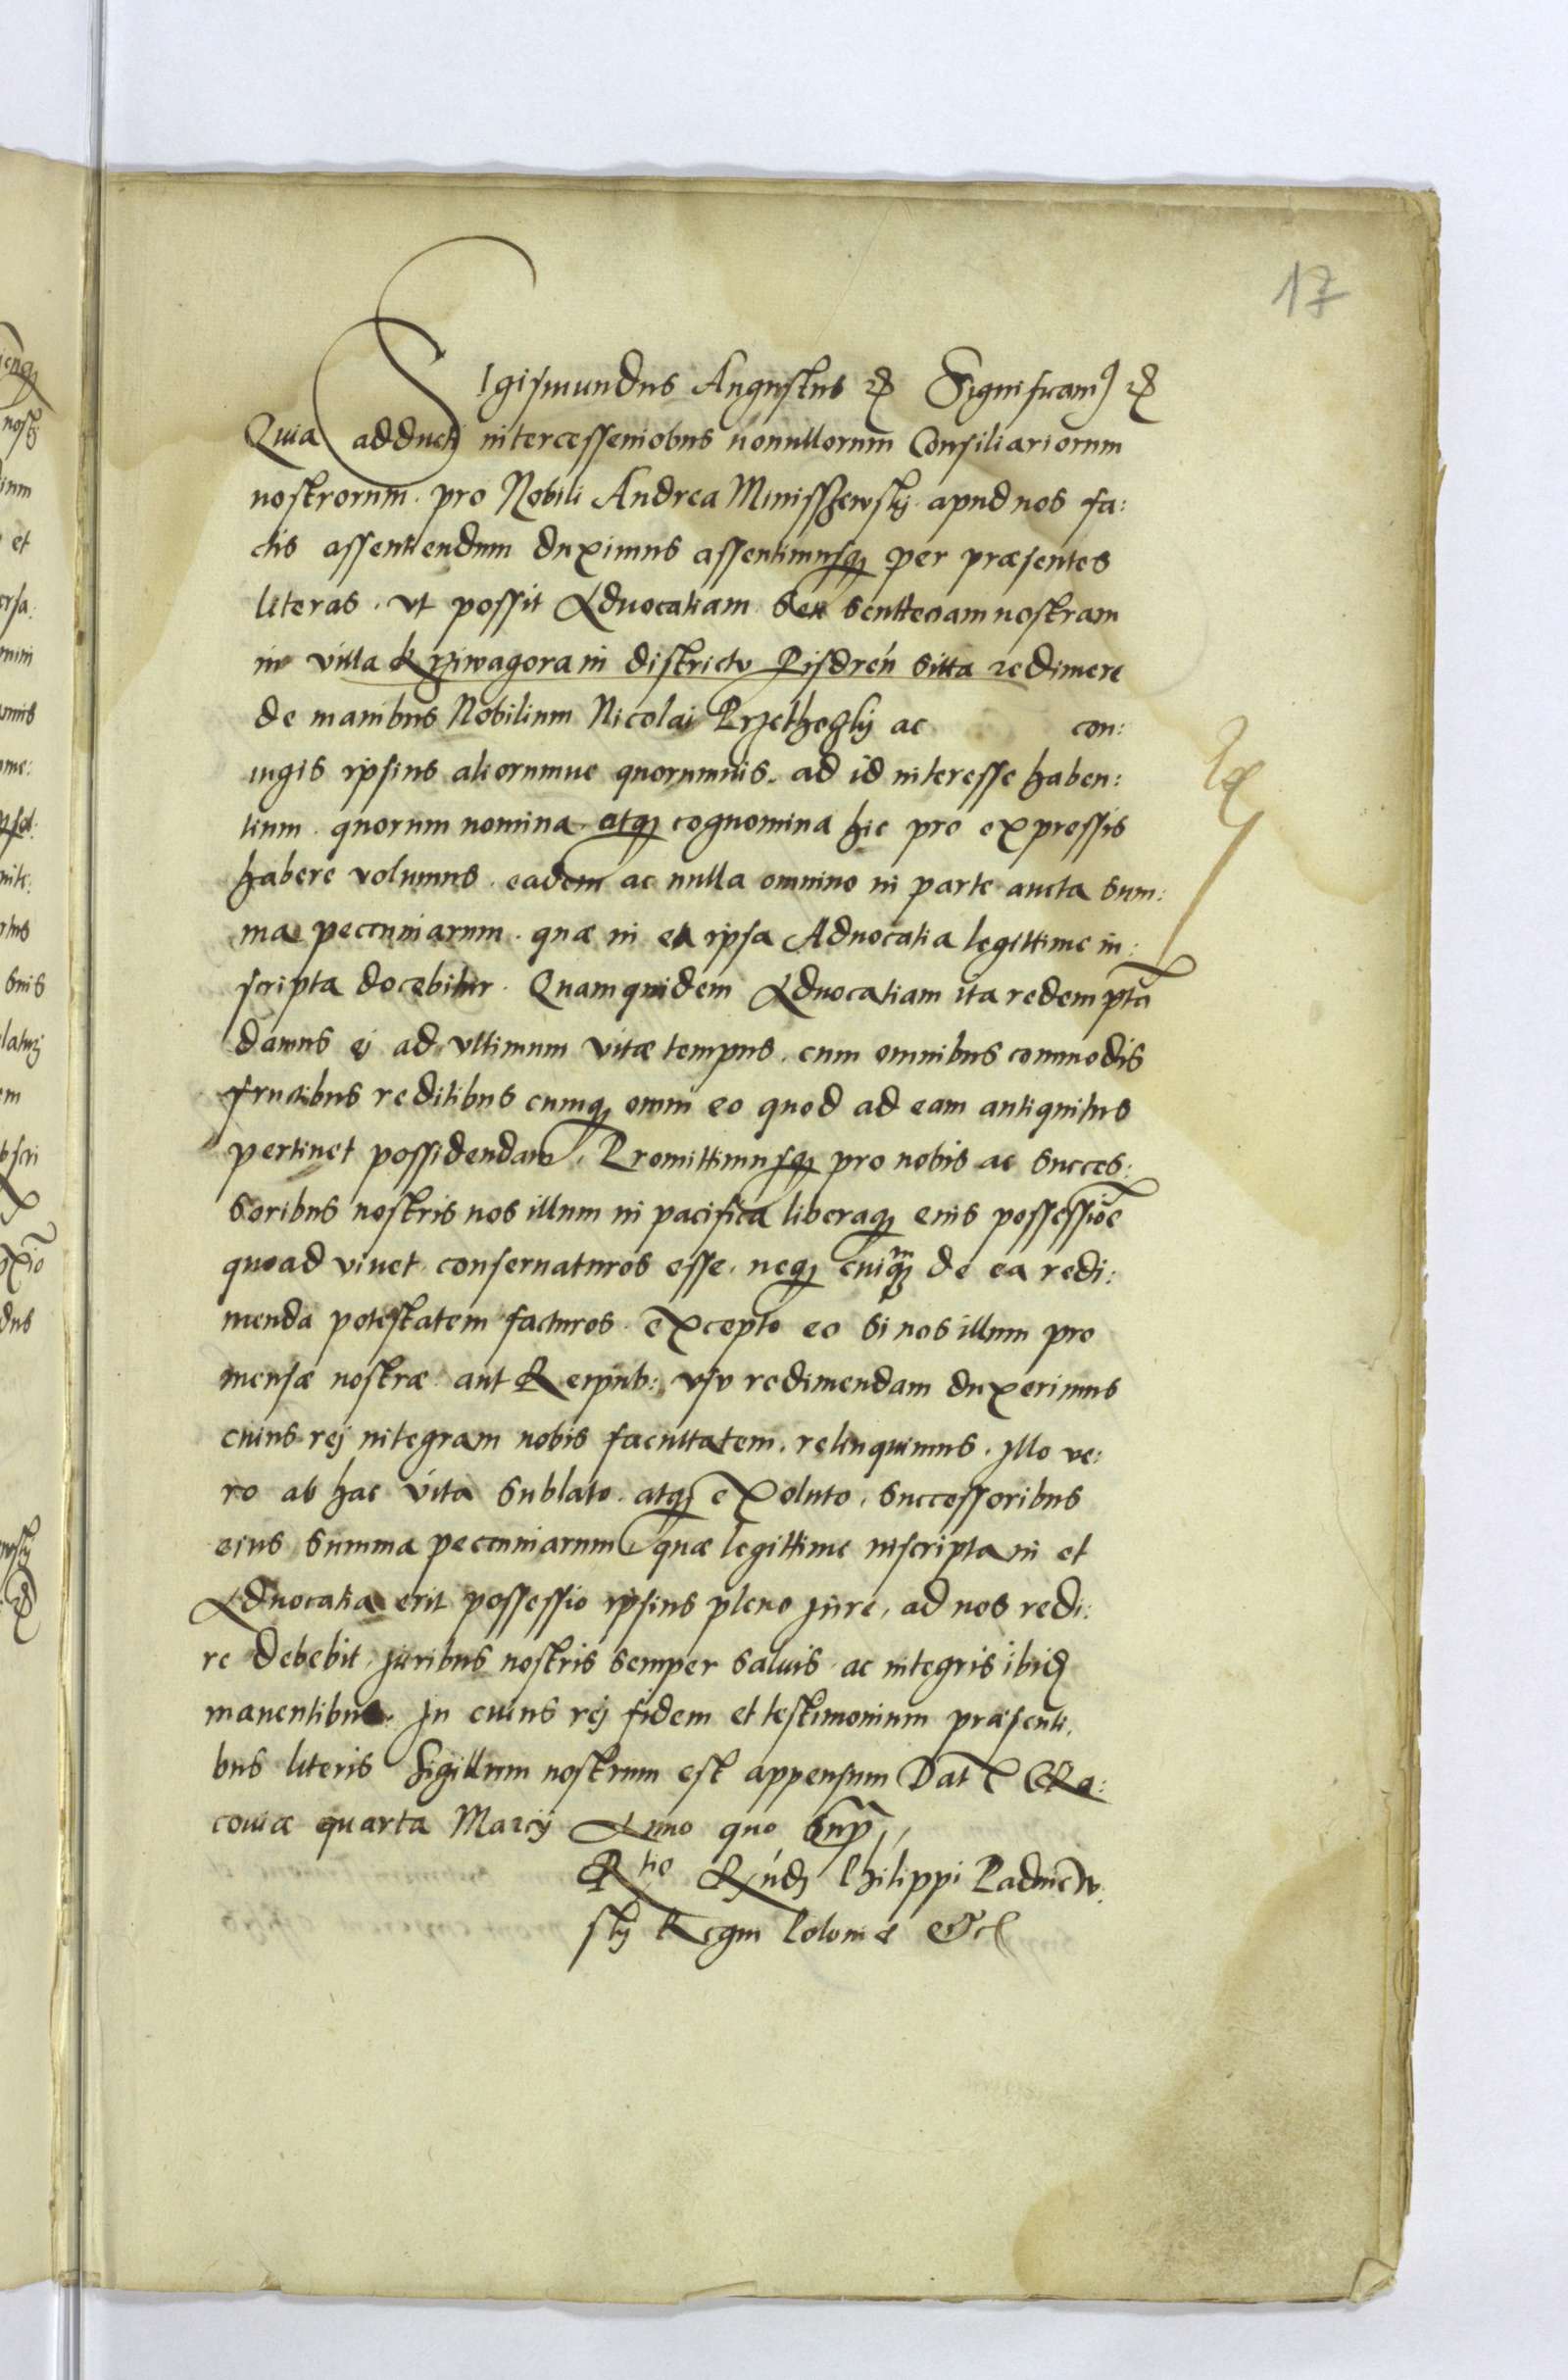 17
Sigismundus Augustus etc Significam9 etc
Quia adducti intercessionobus nonullorum Consiliariorum
nostrorum pro Nobili Andrea Minisszewsky apud nos fa:
ctis assentiendum duximus assentimusq3 per præsentes
literas. vt possit Aduocatiam seu scultteciam nostram
in villa Krziwagora in districtu Pisdren sitta redimere
de manibus Nobilium Nicolai ac con:
iugis ipsius aliorumue quorumuis ad id interesse haben:
tium quorum nomina atq3 cognomina hic pro expressis
habere volumus eadem ac nulla omnino in parte aucta sum:
ma peccuniarum quæ in ea ipsa Aduocatia legittime in:
scripta docebitur. Quamquidem Aduocatiam ita redemptã
damus ej ad vltimum vitæ tempus. cum omnibus commodis
fructibus reditibus cumq3 omni eo quod ad eam antiquitus
pertinet possidendam, Promittimusq3 pro nobis ac succes:
soribus nostris nos illum in pacifica liberaq3 eius possessiõe
quoad viuet conseruaturos esse. neq3 cuiq3m de ea redi:
menda potestatem facturos. excepto eo si nos illum pro
mensæ nostræ aut Reipub: vsv redimendam duxerimus
cuius rej integram nobis facultatem relinquimus. Illo ve:
ro ab hac vita sublato atq3 exoluto, successoribus
eius summa peccuniarum quæ legittime inscripta in et
Aduocatia erit possessio ipsius pleno jure, ad nos redi:
re debebit, juribus nostris semper saluis ac integris ibid
manentibus. In cuius rej fidem et testimonium præsenti,
bus literis Sigillum nostrum est appensum Dat Cra:
couiæ quarta Marcij Anno quo Sup
Rtio Rñdi Philippi Padniew:
sky Regni Poloniæ etc